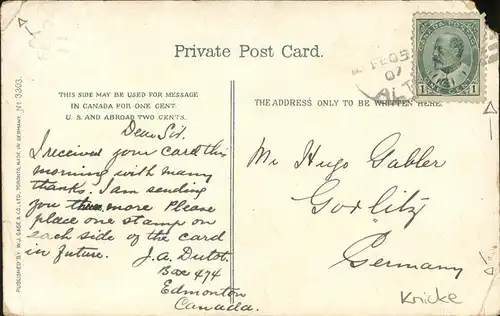 Private Post Card.
CANADA POSTAGE
1 1
ONE CENT
FE 05
07
ALT
THIS SIDE MAY BE USED FOR MESSAGE
IN CANADA FOR ONE CENT.
U. S. AND ABROAD TWO CENTS.
THE ADDRESS ONLY TO BE WRITTEN HERE.
PUBLISHED BY W. J. GAGE & CO., LTD., TORONTO, MADE IN GERMANY. No 3303.
Dear Sir.
I received your card this
morning with many
thanks. I am sending
you three more Please
place one stamp on
each side of the card
in future. J. A. Dutot.
Box 474
Edmonton
Canada.
Mr Hugo Gabler
Gorlitz
Germany
Knicke